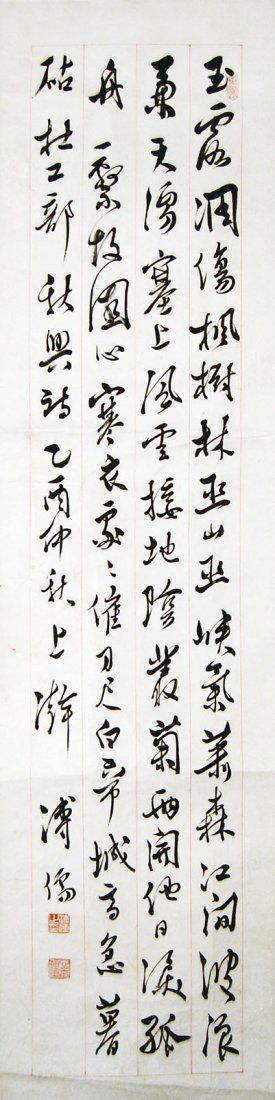 玉露凋傷楓樹林巫山巫峽氣蕭森江間波浪
兼天湧塞上風雲接地陰叢菊兩開他日淚孤
舟一繫故園心寒衣處々催刀尺白帝城高急暮
砧杜工部秋興詩乙酉仲秋上澣 溥儒